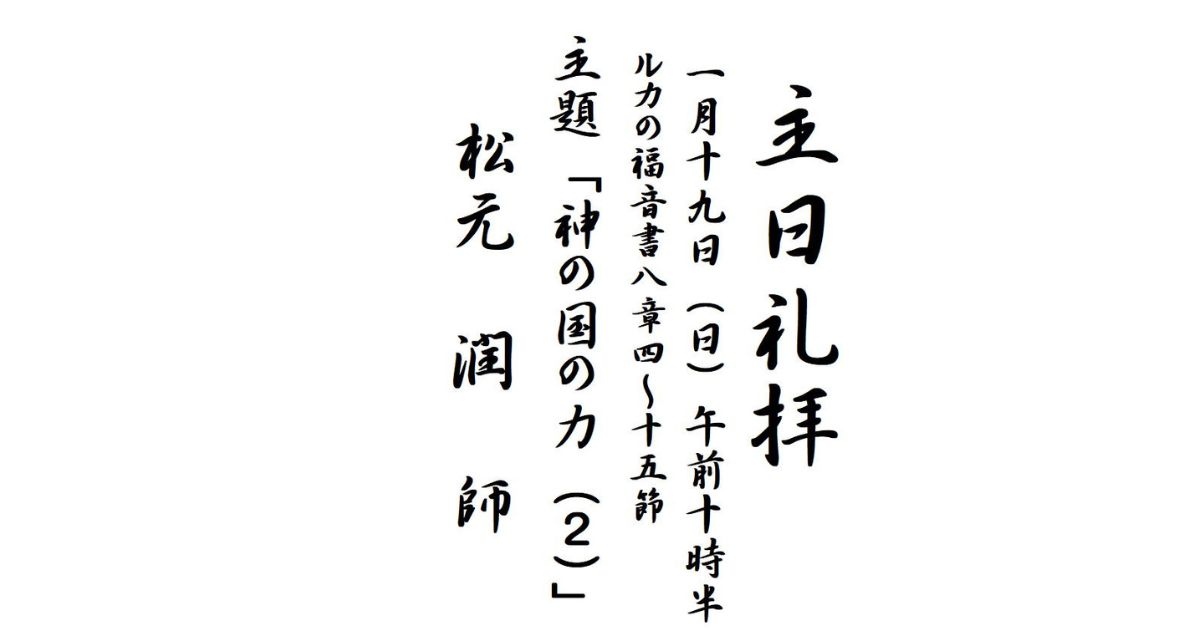 主日礼拝
一月十九日（日）午前十時半
ルカの福音書八章四～十五節
主題「神の国の力（２）」
松元　潤　師